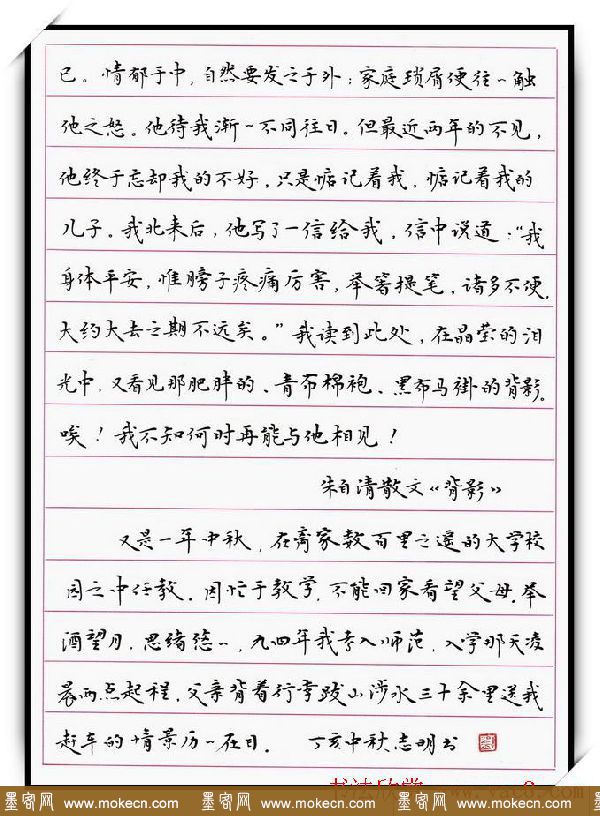 己。情郁于中，自然要发之于外；家庭琐屑便往一触
他之怒。他待我渐一不同往日。但最近两年的不见，
他终于忘却我的不好，只是惦记着我，惦记着我的
儿子。我北来后，他写了一信给我，信中说道：“我
身体平安，惟膀子疼痛厉害，举箸提笔，诸多不便，
大约大去之期不远矣。”我读到此处，在晶莹的泪
光中，又看见那肥胖的、青布棉袍、黑布马褂的背影。
唉！我不知何时再能与他相见！
朱自清散文《背影》
又是一年中秋，在离家数百里之遥的大学校
园之中任教。因忙于教学，不能回家看望父母。举
酒望月，思绪悠一，九四年我考入师范，入学那天凌
晨两点起程，父亲背着行李跋山涉水三十余里送我
赶车的情景历一在目。 丁亥中秋志明书
书法欣赏 www.yac8.com
墨客网 www.mokecn.com 墨客网 www.mokecn.com 墨客网 www.mokecn.com